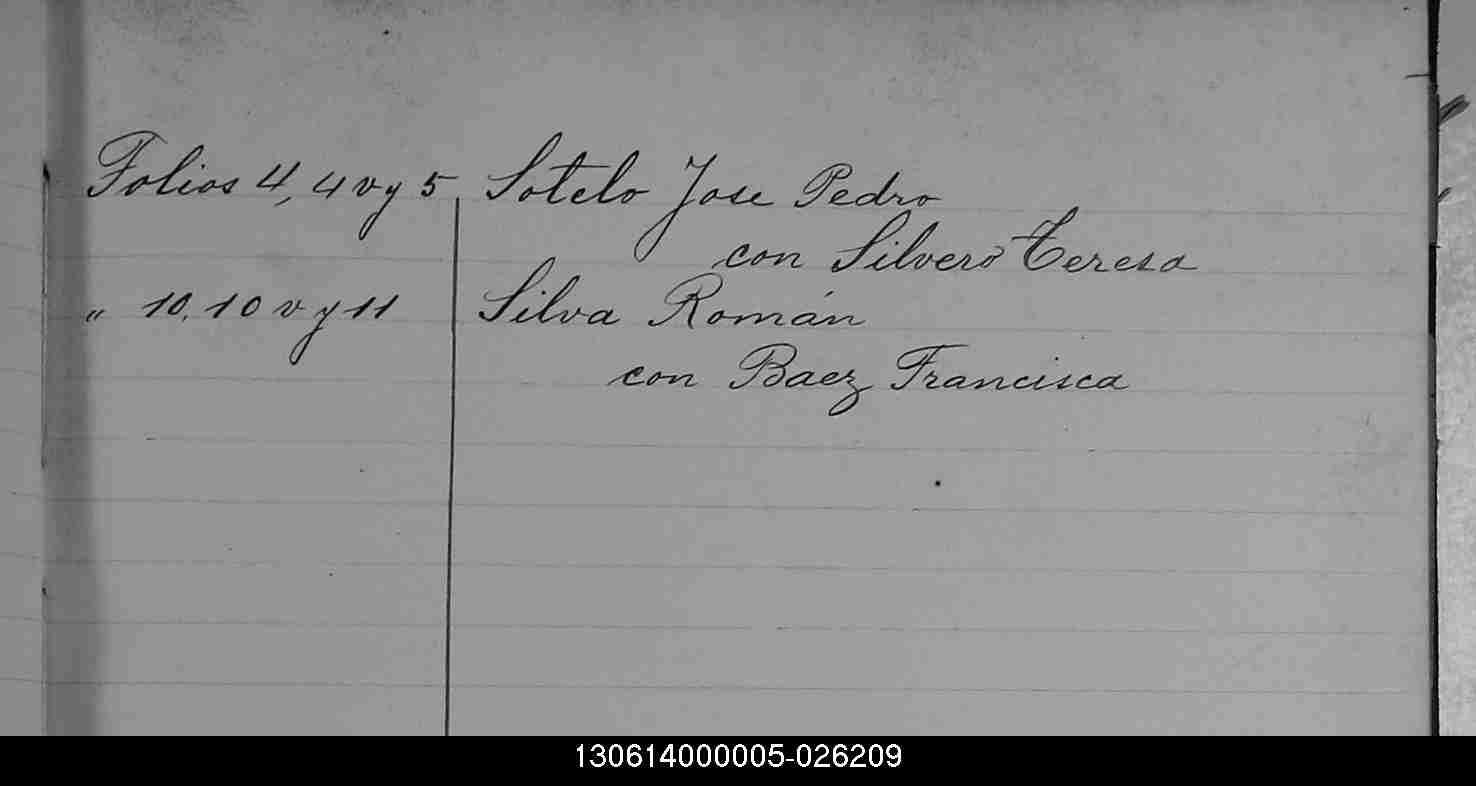 Folios 4, 4 v y 5 Sotelo Jose Pedro
con Silvero Teresa
" 10, 10 v y 11 Silva Román
con Baez Francisca
130614000005-026209